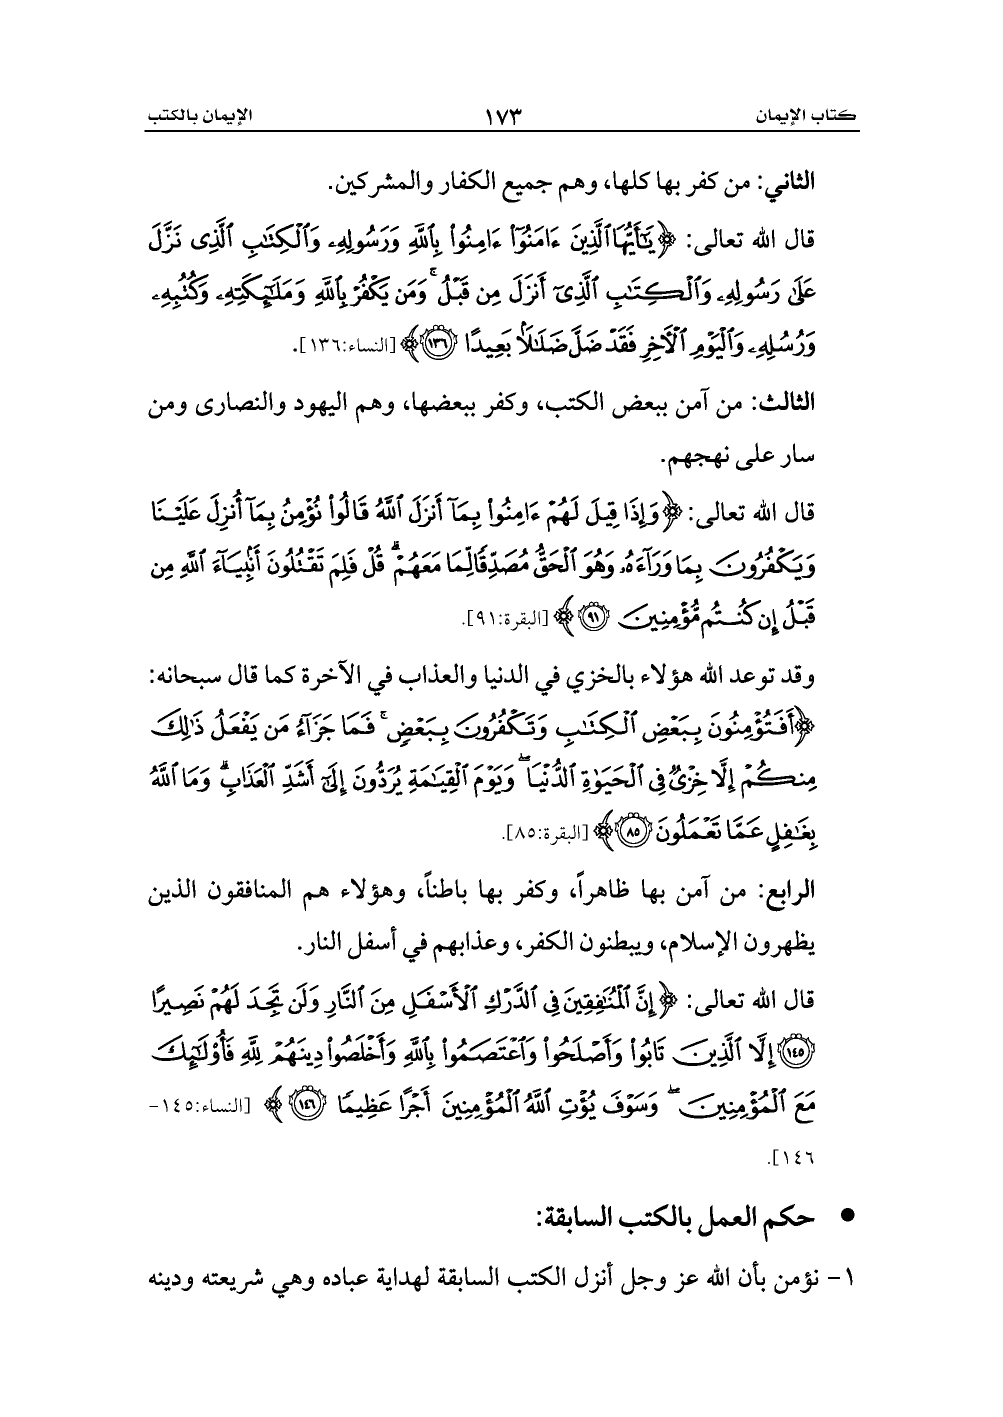 كتاب الإيمان ١٧٣ الإيمان بالكتب
الثاني: من كفر بها كلها، وهم جميع الكفار والمشركين.
قال الله تعالى: ﴿يَٰٓأَيُّهَا ٱلَّذِينَ ءَامَنُوٓا۟ ءَامِنُوا۟ بِٱللَّهِ وَرَسُولِهِۦ وَٱلْكِتَٰبِ ٱلَّذِى نَزَّلَ
عَلَىٰ رَسُولِهِۦ وَٱلْكِتَٰبِ ٱلَّذِىٓ أَنزَلَ مِن قَبْلُ ۚ وَمَن يَكْفُرْ بِٱللَّهِ وَمَلَٰٓئِكَتِهِۦ وَكُتُبِهِۦ
وَرُسُلِهِۦ وَٱلْيَوْمِ ٱلْءَاخِرِ فَقَدْ ضَلَّ ضَلَٰلًۢا بَعِيدًا ١٣٦﴾ [النساء:١٣٦].
الثالث: من آمن ببعض الكتب، وكفر ببعضها، وهم اليهود والنصارى ومن
سار على نهجهم.
قال الله تعالى: ﴿وَإِذَا قِيلَ لَهُمْ ءَامِنُوا۟ بِمَآ أَنزَلَ ٱللَّهُ قَالُوا۟ نُؤْمِنُ بِمَآ أُنزِلَ عَلَيْنَا
وَيَكْفُرُونَ بِمَا وَرَآءَهُۥ وَهُوَ ٱلْحَقُّ مُصَدِّقًا لِّمَا مَعَهُمْ ۗ قُلْ فَلِمَ تَقْتُلُونَ أَنۢبِيَآءَ ٱللَّهِ مِن
قَبْلُ إِن كُنتُم مُّؤْمِنِينَ ٩١﴾ [البقرة:٩١].
وقد توعد الله هؤلاء بالخزي في الدنيا والعذاب في الآخرة كما قال سبحانه:
﴿أَفَتُؤْمِنُونَ بِبَعْضِ ٱلْكِتَٰبِ وَتَكْفُرُونَ بِبَعْضٍ ۚ فَمَا جَزَآءُ مَن يَفْعَلُ ذَٰلِكَ
مِنكُمْ إِلَّا خِزْىٌ فِى ٱلْحَيَوٰةِ ٱلدُّنْيَا ۖ وَيَوْمَ ٱلْقِيَٰمَةِ يُرَدُّونَ إِلَىٰٓ أَشَدِّ ٱلْعَذَابِ ۗ وَمَا ٱللَّهُ
بِغَٰفِلٍ عَمَّا تَعْمَلُونَ ٨٥﴾ [البقرة:٨٥].
الرابع: من آمن بها ظاهراً، وكفر بها باطناً، وهؤلاء هم المنافقون الذين
يظهرون الإسلام، ويبطنون الكفر، وعذابهم في أسفل النار.
قال الله تعالى: ﴿إِنَّ ٱلْمُنَٰفِقِينَ فِى ٱلدَّرْكِ ٱلْأَسْفَلِ مِنَ ٱلنَّارِ وَلَن تَجِدَ لَهُمْ نَصِيرًا
١٤٥ إِلَّا ٱلَّذِينَ تَابُوا۟ وَأَصْلَحُوا۟ وَٱعْتَصَمُوا۟ بِٱللَّهِ وَأَخْلَصُوا۟ دِينَهُمْ لِلَّهِ فَأُو۟لَٰٓئِكَ
مَعَ ٱلْمُؤْمِنِينَ ۖ وَسَوْفَ يُؤْتِ ٱللَّهُ ٱلْمُؤْمِنِينَ أَجْرًا عَظِيمًا ١٤٦﴾ [النساء:١٤٥-
١٤٦].
● حكم العمل بالكتب السابقة:
١- نؤمن بأن الله عز وجل أنزل الكتب السابقة لهداية عباده وهي شريعته ودينه